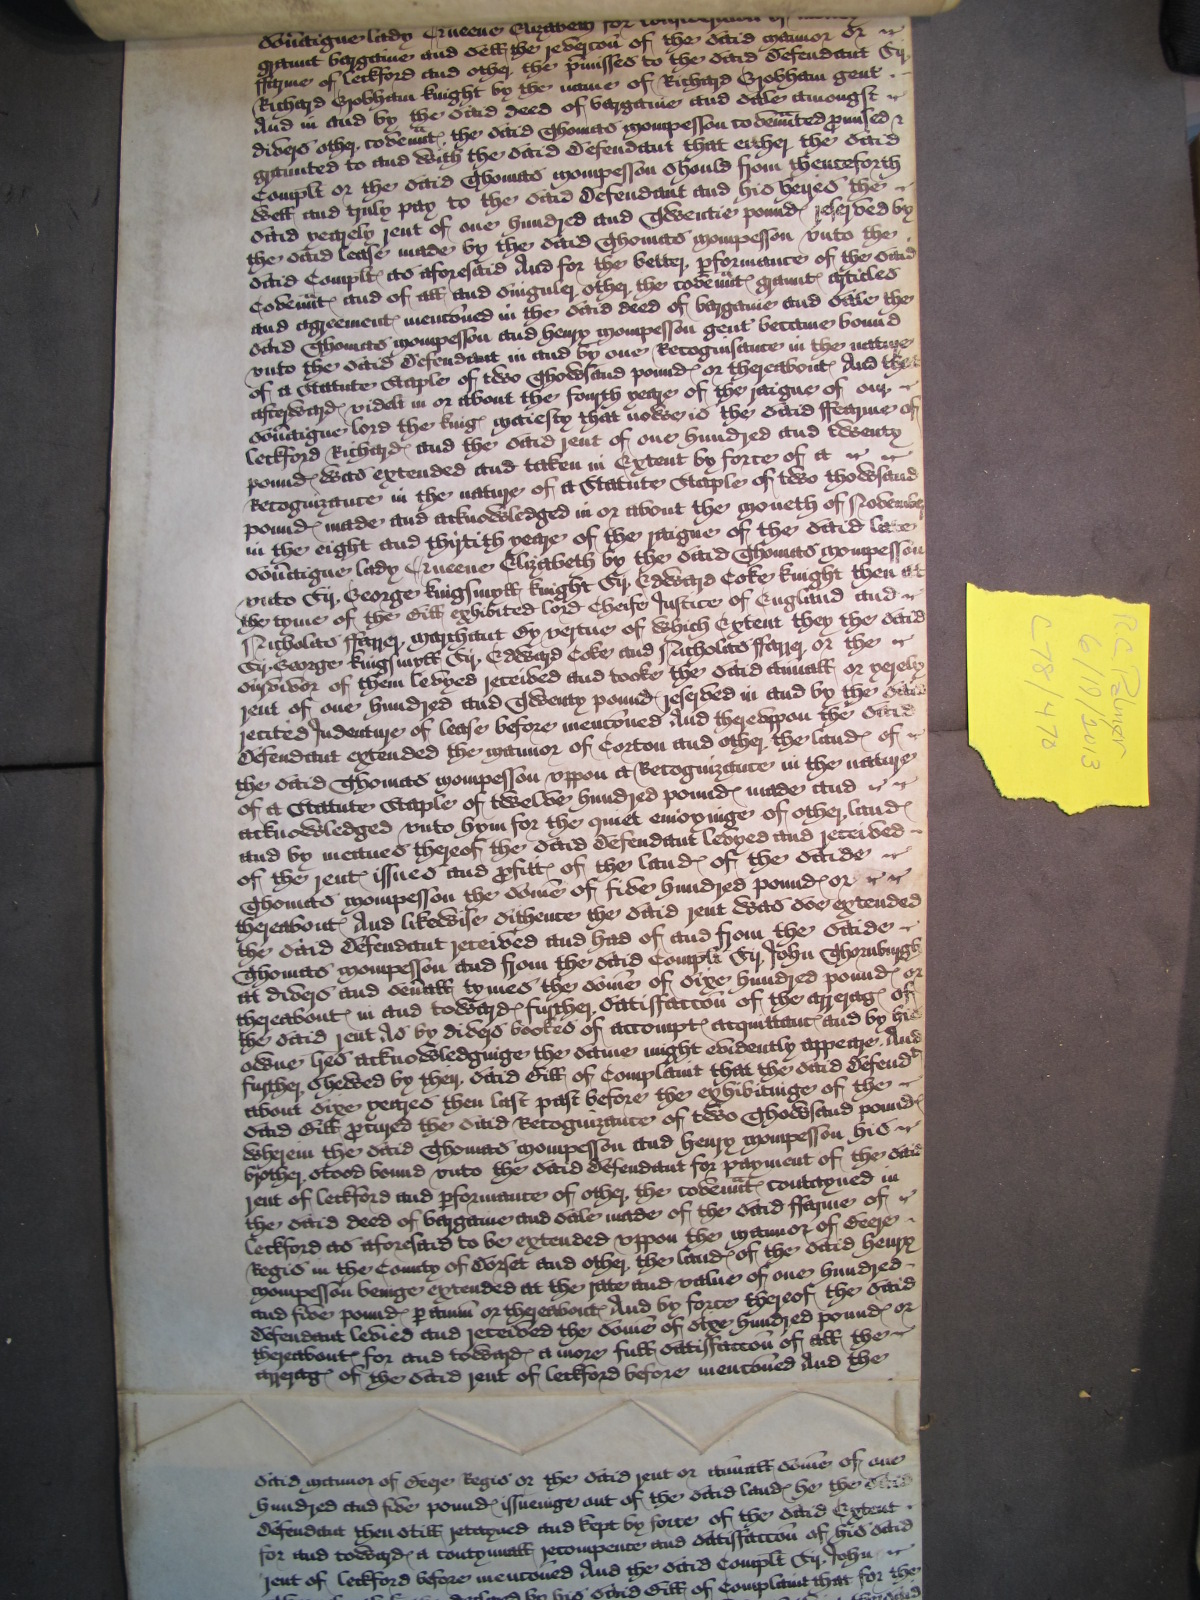 Soũaigne lady Queene Elizabeth for
graunt bargaine and sell the reverc̃on of the said mannor or
ffarme of leckford and other the p̃misses to the said defendant Sir
Richard Grobham knight by the name of Richard Grobham gent
And in and by the said deed of bargaine and sale amongst
divers other covenñt the said Thomas Mompesson covenñted promised &
graunted to and with the said Defendant that either the said
Complt or the said Thomas Mompesson should from thenceforth
well and truly pay to the said Defendant and his heires the
said yearely rent of one hundred and Twentie pound reserved by
the said lease made by the said Thomas Mompesson vnto the
said Complt as aforesaid And for the better p̱formance of the said
Covenñt and of all and singuler other the covenñt graunt articles
and agreement menc̃oned in the said deed of bargaine and sale the
said Thomas Mompesson and henry Mompesson gent became bound
vnto the said Defendant in and by one Recognisance in the nature
of a Statute Staple of two Thowsand pound or thereabout And that
afterward videlt in or about the fourth yeare of the raigne of our
Soũaigne lord the king maiesty that nowe is the said ffearme of
leckford Richard and the said rent of one hundred and twenty
pound was extended and taken in Extent by force of a
Recognizance in the nature of a Statute Staple of two thowsand
pound made and acknowledged in or about the moneth of November
in the eight and thirtith yeare of the raigne of the said late
Soũaigne lady Queene Elizabeth by the said Thomas Mompesson
vnto Sir George kingsmyll knight Sir Edward Coke knight then at
the tyme of the Bill exhibited lord Cheife Justice of England and
Nicholas ffarrer marchant By vertue of which Extent they the said
Sir George kingsmyll Sir Edward Coke and Nicholas ffarrer or the
survivor of them levyed received and tooke the said annuall or yerely
rent of one hundred and Twenty pound reserved in and by the said
recited Indenture of lease before menc̃oned And therevppon the said
Defendant extended the mannor of Corton and other the land of
the said Thomas Mompesson vppon a Recognizance in the nature
of a Statute Staple of twelve hundred pound made and
acknowledged vnto hym for the quiet enioyinge of other land
and by meanes thereof the said Defendant levyed and received
of the rent issues and p̱fitt of the land of the saide
Thomas Mompesson the som̃e of five hundred pound or
thereabout And likewise sithence the said rent was soe extended
the said Defendant received and had of and from the saide
Thomas Mompesson and from the said Complt Sir John Thornburgh
at divers and seũall tymes the som̃e of sixe hundred pound or
thereabout in and toward further satisfacc̃on of the arrerag of
the said rent As by divers bookes of accompt acquittanc and by his
owne acknowledginge the same might evidently appeare And
further shewed by their said Bill of Complaint that the said Defendt
about sixe yeares then last past before the exhibitinge of the
said Bill p̱cured the said Recognizance of two Thowsand pound
wherein the said Thomas Mompesson and henry Mompesson his
brother stood bound vnto the said Defendant for payment of the said
rent of leckford and p̱formance of other the covenñt contayned in
the said deed of bargaine and sale made of the said ffarme of
leckford as aforesaid to be extended vppon the mannor of Deere
Regis in the County of Dorset and other the land of the said henry
Mompesson beinge extended at the rate and value of one hundred
and five pound p̱ annũ or thereabout And by force thereof the said
Defendant levied and received the som̃e of sixe hundred pound or
thereabout for and toward a more full satisfacc̃on of all the
arrerag of the said rent of leckford before menc̃oned And the
said mannor of Deere Regis or the said rent or annuall som̃e of one
hundred and five pound issueinge out of the said land he the said
Defendant then still retayned and kept by force of the said Extent
for and toward a contynuall recompence and satisfacc̃on of his said
rent of leckford before menc̃oned And the said Complt Sir John
by his said Bill of Complaint that for the
RC Palmer
6/19/2013
C78/470